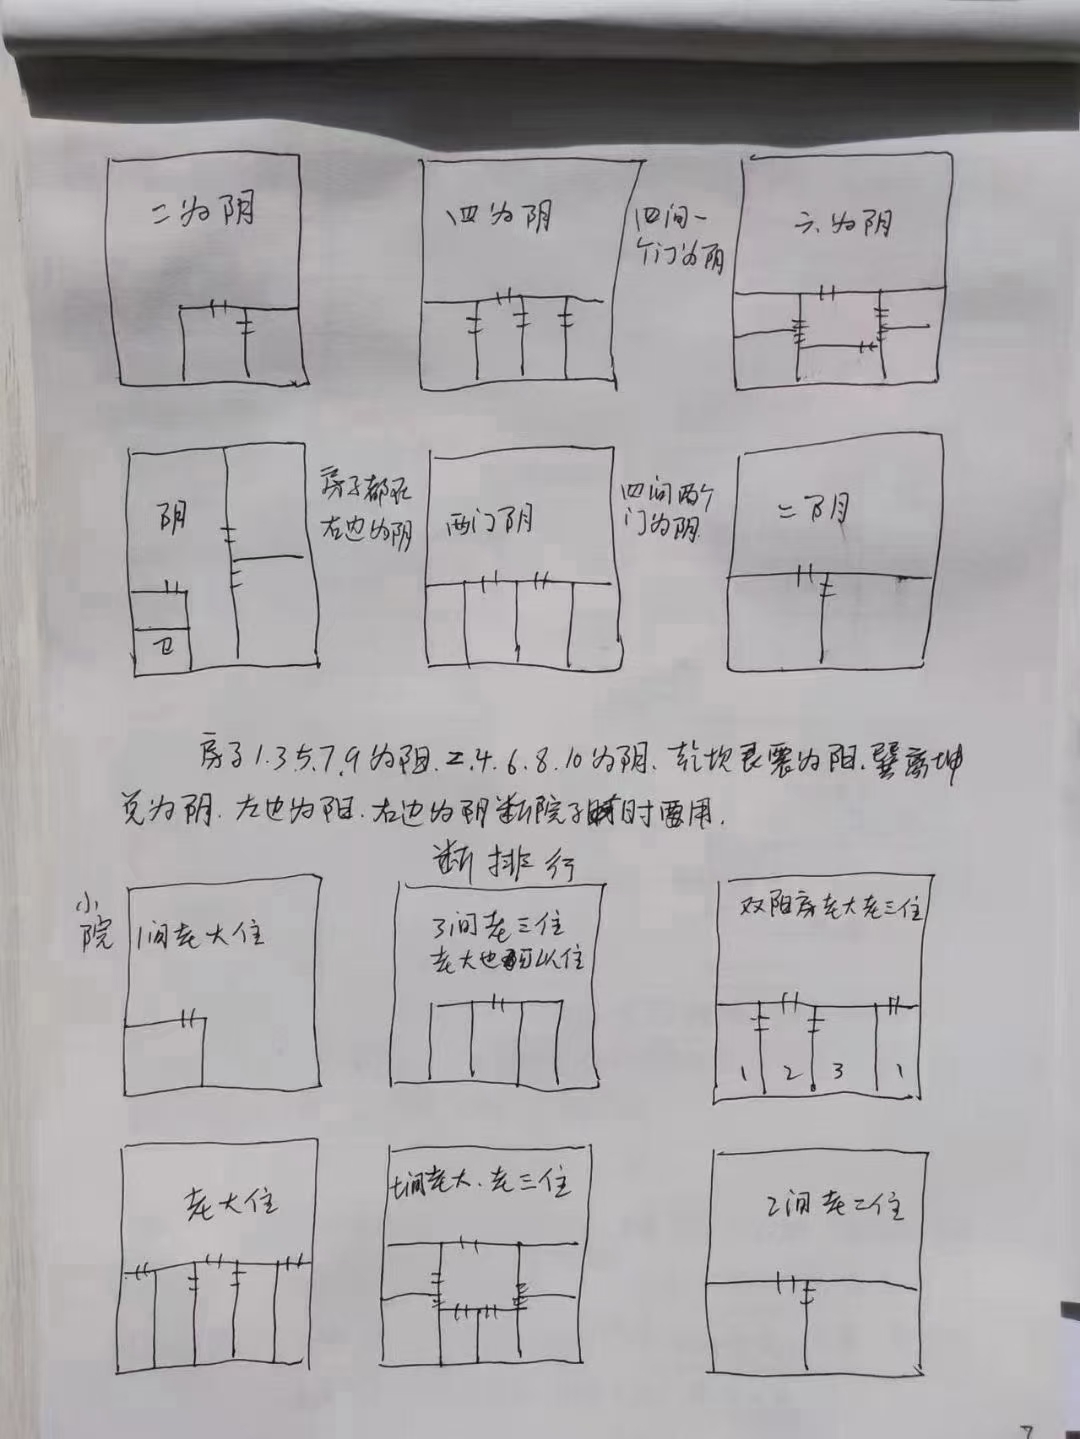 二为阴
四为阴
四间一
个门为阴
六为阴
阴
卫
房子都在
右边为阴
两门阴
四间两个
门为阴
二阴
房子1.3.5.7.9为阳.2.4.6.8.10为阴.乾坎艮震为阳.巽离坤
兑为阴.左边为阳.右边为阴断院子时要用.
断排行
小
院
1间老大住
3间老三住
老大也可以住
双阳房老大老三住
1 2 3 1
老大住
七间老大.老三住
2间老二住
7